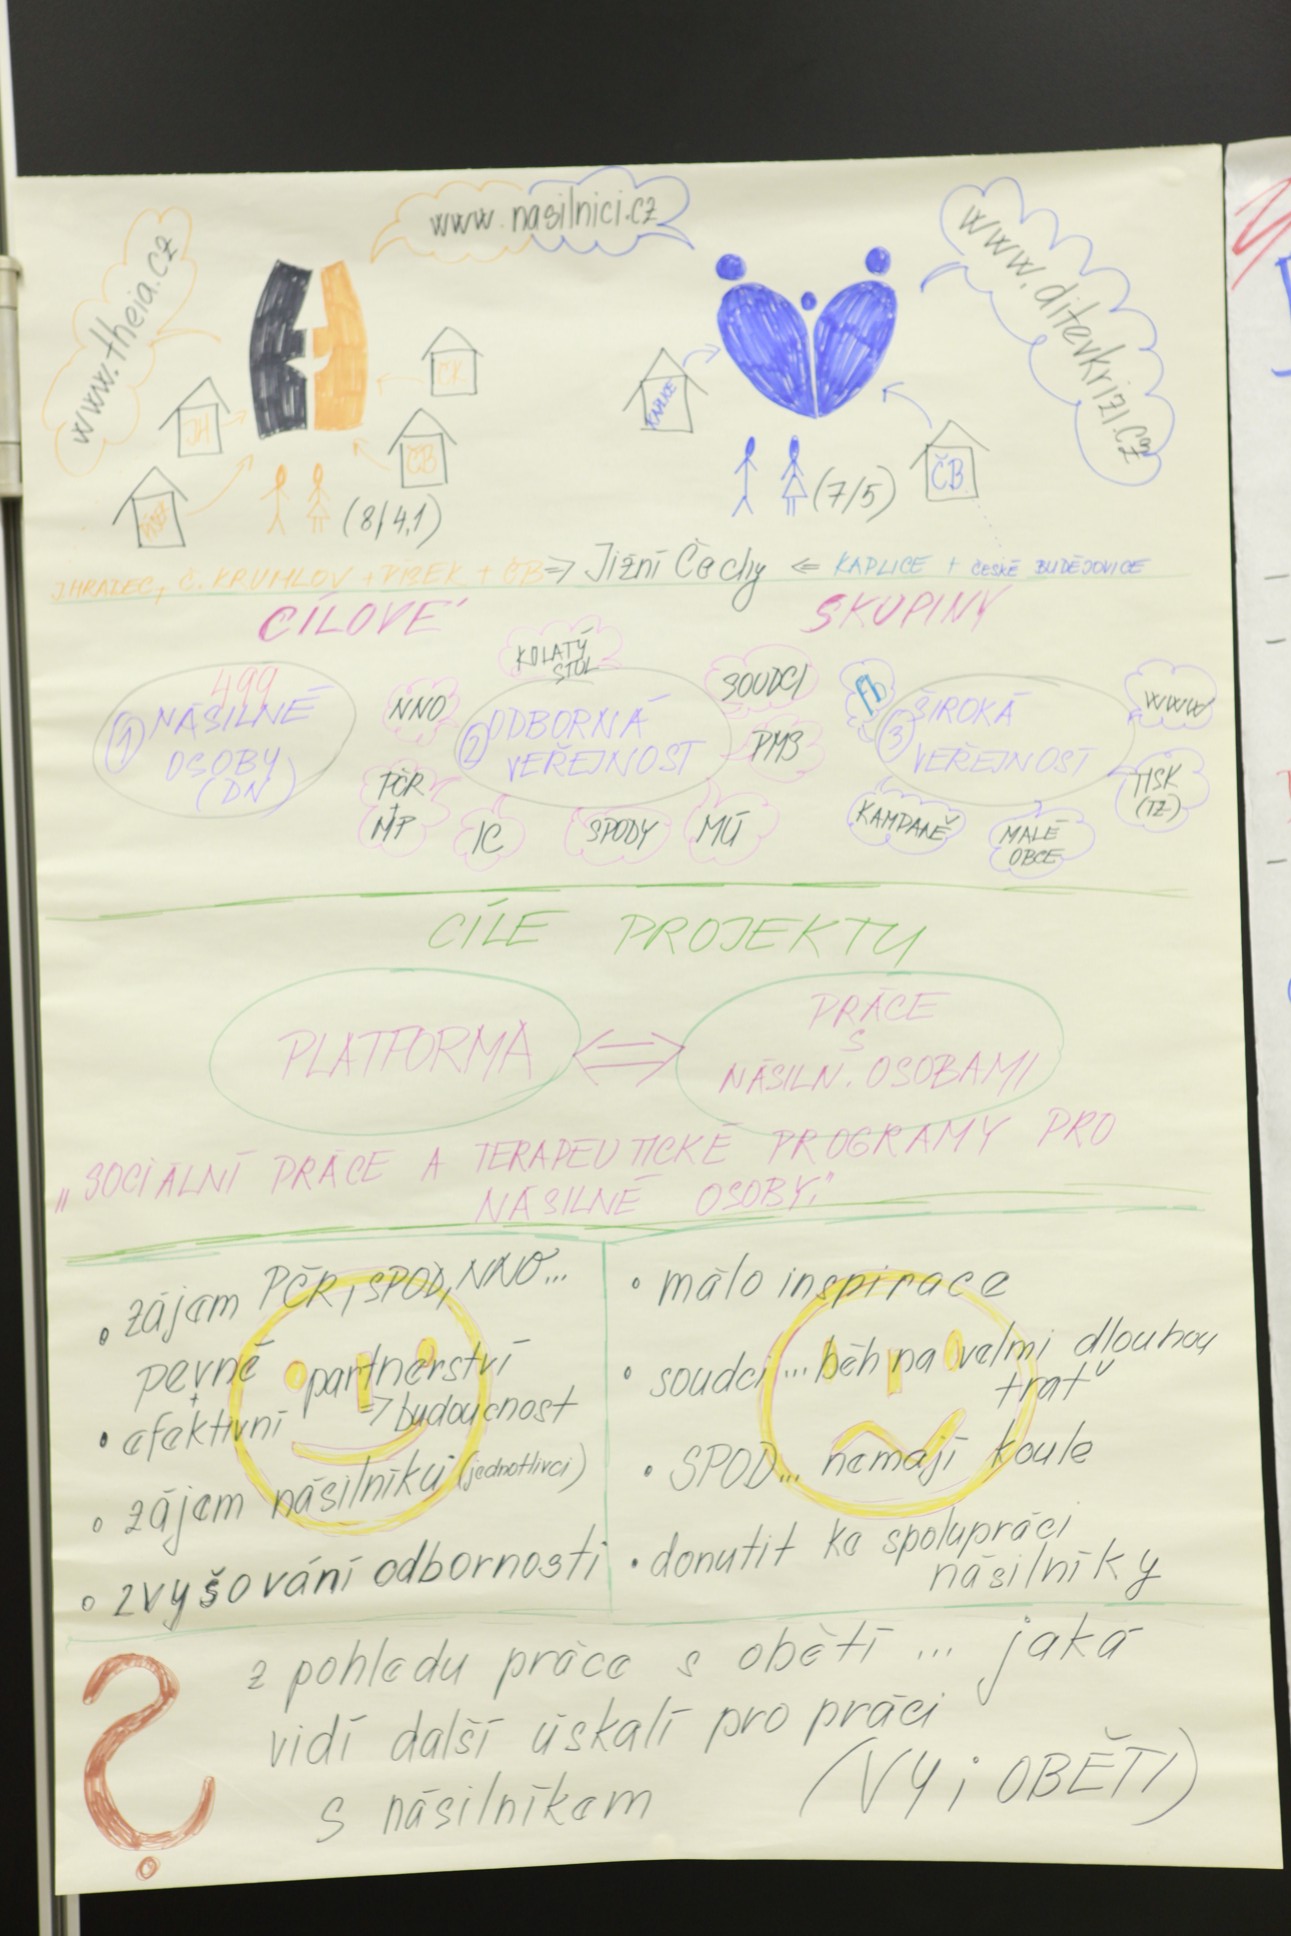 www.theia.cz
www.nasilnici.cz
www.ditevkrizi.cz
JH
ČK
ČB
PÍSEK
(8/4,1)
KAPLICE
ČB
(7/5)
J.HRADEC, Č. KRUMLOV + PÍSEK + ČB ⇒ Jižní Čechy ⇐ KAPLICE + ČESKÉ BUDĚJOVICE
CÍLOVÉ SKUPINY
499
① NÁSILNÉ
OSOBY
(DN)
KULATÝ
STŮL
NNO
② ODBORNÁ
VEŘEJNOST
SOUDCI
PMS
PČR
+
MP
IC
SPODY
MÚ
fb
③ ŠIROKÁ
VEŘEJNOST
WWW
TISK
(TZ)
KAMPANĚ
MALÉ
OBCE
CÍLE PROJEKTU
PLATFORMA
PRÁCE
S
NÁSILN. OSOBAMI
„SOCIÁLNÍ PRÁCE A TERAPEUTICKÉ PROGRAMY PRO
NÁSILNÉ OSOBY."
• zájem PČR, SPOD, NNO...
• pevné
+
efektivní partnerství
=> budoucnost
• zájem násilníků (jednotlivci)
• zvyšování odbornosti
• málo inspirace
• soudci ... běh na velmi dlouhou
trať
• SPOD... nemají koule
• donutit ke spolupráci
násilníky
?
z pohledu práce s obětí ... jaká
vidí další úskalí pro práci
s násilníkem (VY i OBĚTI)